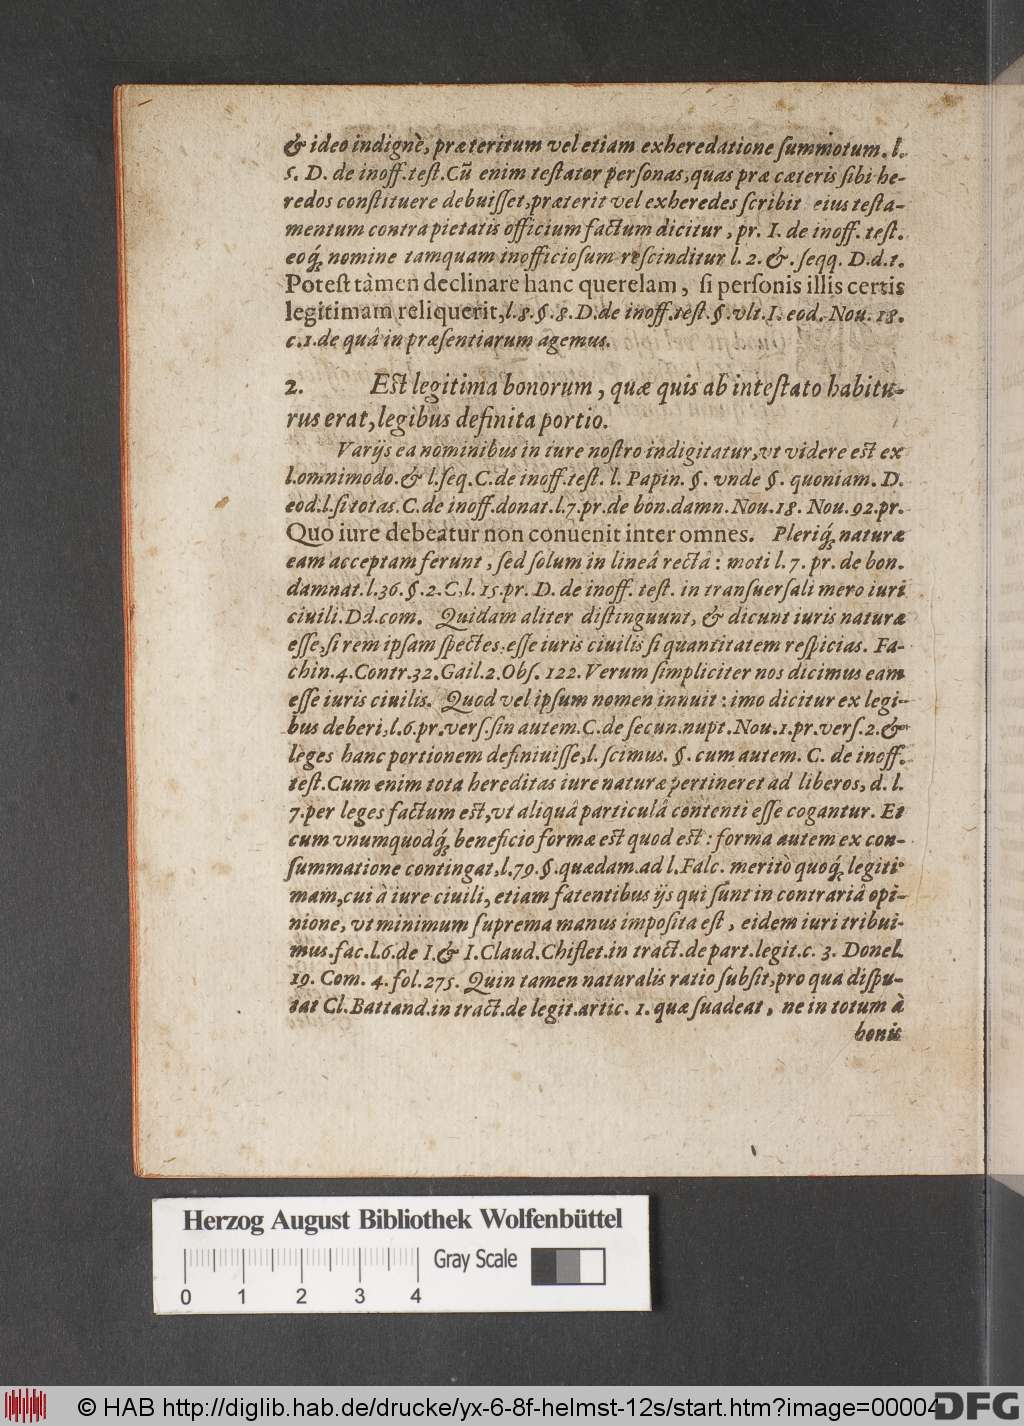 & ideo indignè, præteritum vel etiam exheredatione summotum. l.
5. D. de inoff. test. Cũ enim testator personas, quas præ cæteris sibi he-
redos constituere debuisset, præterit vel exheredes scribit eius testa-
mentum contra pietatis officium factum dicitur, pr. I. de inoff. test.
eoq́; nomine tamquam inofficiosum rescinditur l. 2. &. seqq. D. d. t.
Potest tàmen declinare hanc querelam, si personis illis certis
legitimam reliquerit, l. 8. §. 8. D. de inoff. test. §. vlt. I. eod. Nou. 18.
c. 1. de quâ in præsentiarum agemus.
2. Est legitima bonorum, quæ quis ab intestato habitu-
rus erat, legibus definita portio.
Varijs ea nominibus in iure nostro indigitatur, vt videre est ex
l. omnimodo. & l. seq. C. de inoff. test. l. Papin. §. vnde §. quoniam. D.
eod. l. si totas. C. de inoff. donat. l. 7. pr. de bon. damn. Nou. 18. Nou. 92. pr.
Quo iure debeatur non conuenit inter omnes. Pleriq́; naturæ
eam acceptam ferunt, sed solum in lineâ rectâ: moti l. 7. pr. de bon.
damnat. l. 36. §. 2. C. l. 15. pr. D. de inoff. test. in transuersali mero iuri
ciuili. Dd. com. Quidam aliter distinguunt, & dicunt iuris naturæ
esse, si rem ipsam spectes: esse iuris ciuilis si quantitatem respicias. Fa-
chin. 4. Contr. 32. Gail. 2. Obs. 122. Verum simpliciter nos dicimus eam
esse iuris ciuilis. Quod vel ipsum nomen innuit: imo dicitur ex legi-
bus deberi, l. 6. pr. vers. sin autem. C. de secun. nupt. Nou. 1. pr. vers. 2. &
leges hanc portionem definiuisse, l. scimus. §. cum autem. C. de inoff.
test. Cum enim tota hereditas iure naturæ pertineret ad liberos, d. l.
7. per leges factum est, vt aliquâ particulâ contenti esse cogantur. Et
cum vnumquodq́; beneficio formæ est quod est: forma autem ex con-
summatione contingat, l. 79. §. quædam. ad l. Falc. meritò quoq́; legiti-
mam, cui à iure ciuili, etiam fatentibus ijs qui sunt in contrariâ opi-
nione, vt minimum suprema manus imposita est, eidem iuri tribui-
mus. fac. l. 6. de I. & I. Claud. Chiflet. in tract. de part. legit. c. 3. Donel.
19. Com. 4. fol. 275. Quin tamen naturalis ratio subsit, pro qua dispu-
tat Cl. Battand. in tract. de legit. artic. 1. quæ suadeat, ne in totum à
bonis
Herzog August Bibliothek Wolfenbüttel
Gray Scale
0 1 2 3 4
© HAB http://diglib.hab.de/drucke/yx-6-8f-helmst-12s/start.htm?image=00004
DFG